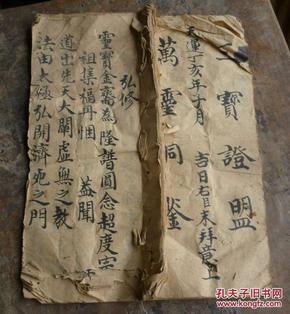 三寶證盟
天運丁亥年子月 吉日右目末拜意旦
萬靈同鑒
弘修
靈寶金齋為隆譜圓念超度宗
祖集福冊悃 益聞
道出先天大闡虛無之教
法由太極弘開濟死之門
孔夫子旧书网